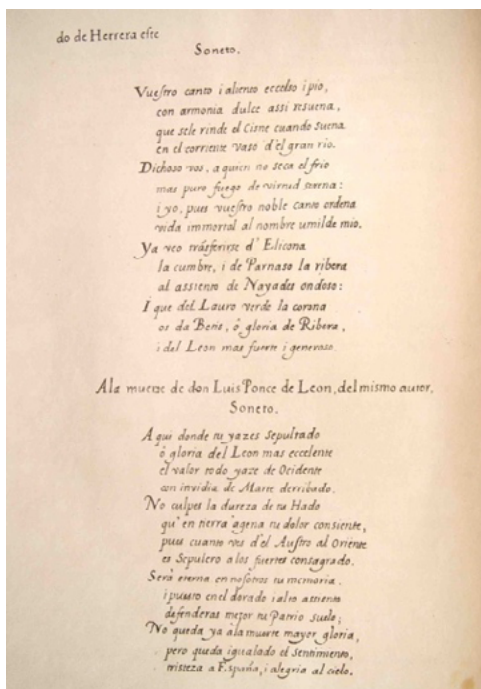 do de Herrera este
Soneto.
Vuestro canto i aliento eccelso i pio,
con armonia dulce assi resuena,
que sele rinde el Cisne cuando suena
en el corriente vaso d'el gran rio.
Dichoso vos, a quien no seca el frio
mas puro fuego de virtud serena:
i yo, pues vuestro noble canto ordena
vida immortal al nombre umilde mio.
Ya veo trãsferirse d'Elicona
la cumbre, i de Parnaso la ribera
al assiento de Nayades ondoso:
I que del Lauro verde la corona
os da Betis, ô gloria de Ribera,
i del Leon mas fuerte i generoso.
Ala muerte de don Luis Ponce de Leon, del mismo autor.
Soneto.
Aqui donde tu yazes sepultado
ô gloria del Leon mas eccelente
el valor todo yaze de Ocidente
con invidia de Marte derribado.
No culpes la dureza de tu Hado
qu'en tierra agena tu dolor consiente,
pues cuanto ves d'el Austro al Oriente
es Sepulcro a los fuertes consagrado.
Serà eterna en nosotros tu memoria.
i puesto enel dorado i alto assiento
defenderas mejor tu Patrio suelo;
No queda ya ala muerte mayor gloria,
pero queda igualado el sentimiento,
tristeza a España, i alegria al cielo.